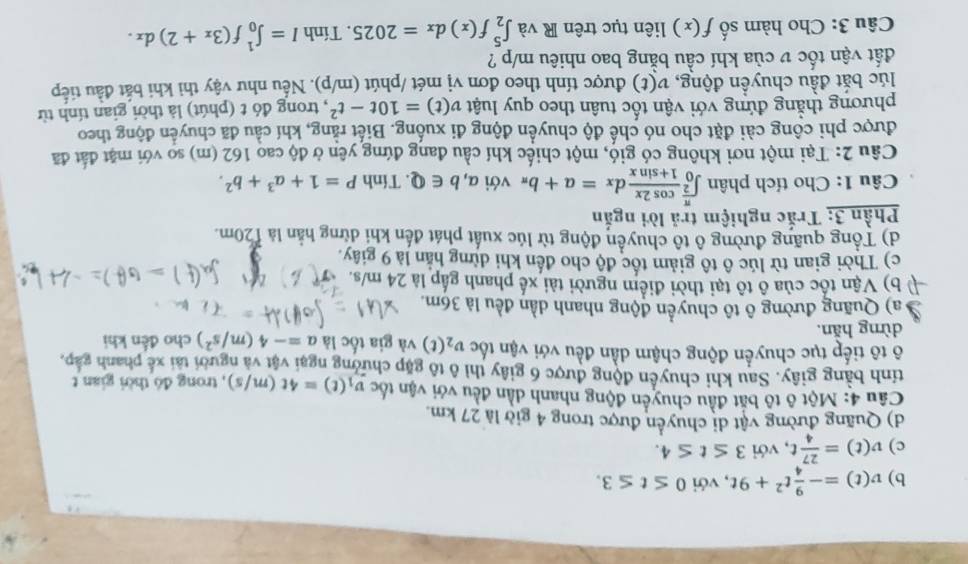 b) v(t) = −9/4 t² + 9t, với 0 ≤ t ≤ 3.
c) v(t) = 27/4 t, với 3 ≤ t ≤ 4.
d) Quãng đường vật di chuyển được trong 4 giờ là 27 km.
Câu 4: Một ô tô bắt đầu chuyển động nhanh dần đều với vận tốc v₁(t) = 4t (m/s), trong đó thời gian t
tính bằng giây. Sau khi chuyển động được 6 giây thì ô tô gặp chướng ngại vật và người tài xế phanh gấp,
ô tô tiếp tục chuyển động chậm dần đều với vận tốc v₂(t) và gia tốc là a = − 4 (m/s²) cho đến khi
dừng hẳn.
a) Quãng đường ô tô chuyển động nhanh dần đều là 36m.
b) Vận tốc của ô tô tại thời điểm người tài xế phanh gấp là 24 m/s.
c) Thời gian từ lúc ô tô giảm tốc độ cho đến khi dừng hẳn là 9 giây.
d) Tổng quãng đường ô tô chuyển động từ lúc xuất phát đến khi dừng hẳn là 120m.
Phần 3: Trắc nghiệm trả lời ngắn
Câu 1: Cho tích phân ∫₀^(π/2) cos 2x/(1+sin x) dx = a + bπ với a, b ∈ Q. Tính P = 1 + a³ + b².
Câu 2: Tại một nơi không có gió, một chiếc khí cầu đang đứng yên ở độ cao 162 (m) so với mặt đất đã
được phi công cài đặt cho nó chế độ chuyển động đi xuống. Biết rằng, khí cầu đã chuyển động theo
phương thẳng đứng với vận tốc tuân theo quy luật v(t) = 10t − t², trong đó t (phút) là thời gian tính từ
lúc bắt đầu chuyển động, v(t) được tính theo đơn vị mét /phút (m/p). Nếu như vậy thì khi bắt đầu tiếp
đất vận tốc v của khí cầu bằng bao nhiêu m/p ?
Câu 3: Cho hàm số f(x) liên tục trên ℝ và ∫₂⁵ f(x) dx = 2025. Tính I = ∫₀¹ f(3x + 2) dx .